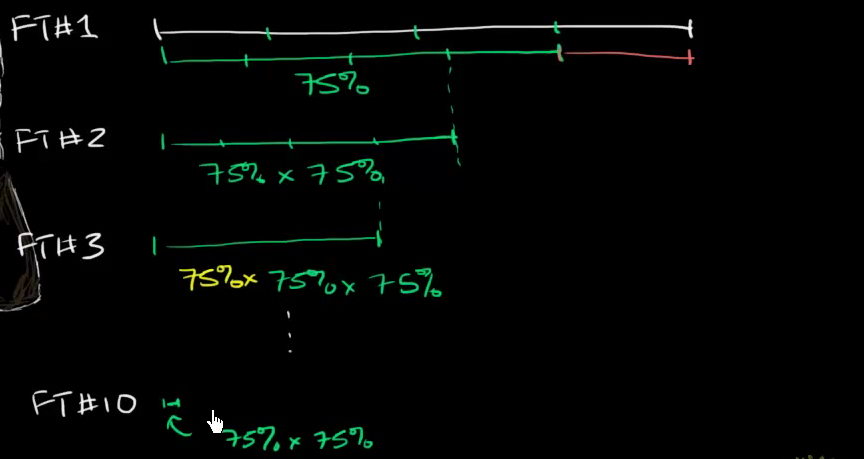 FT#1
75%
FT#2
75% x 75%
FT#3
75% x 75% x 75%
FT#10
75% x 75%